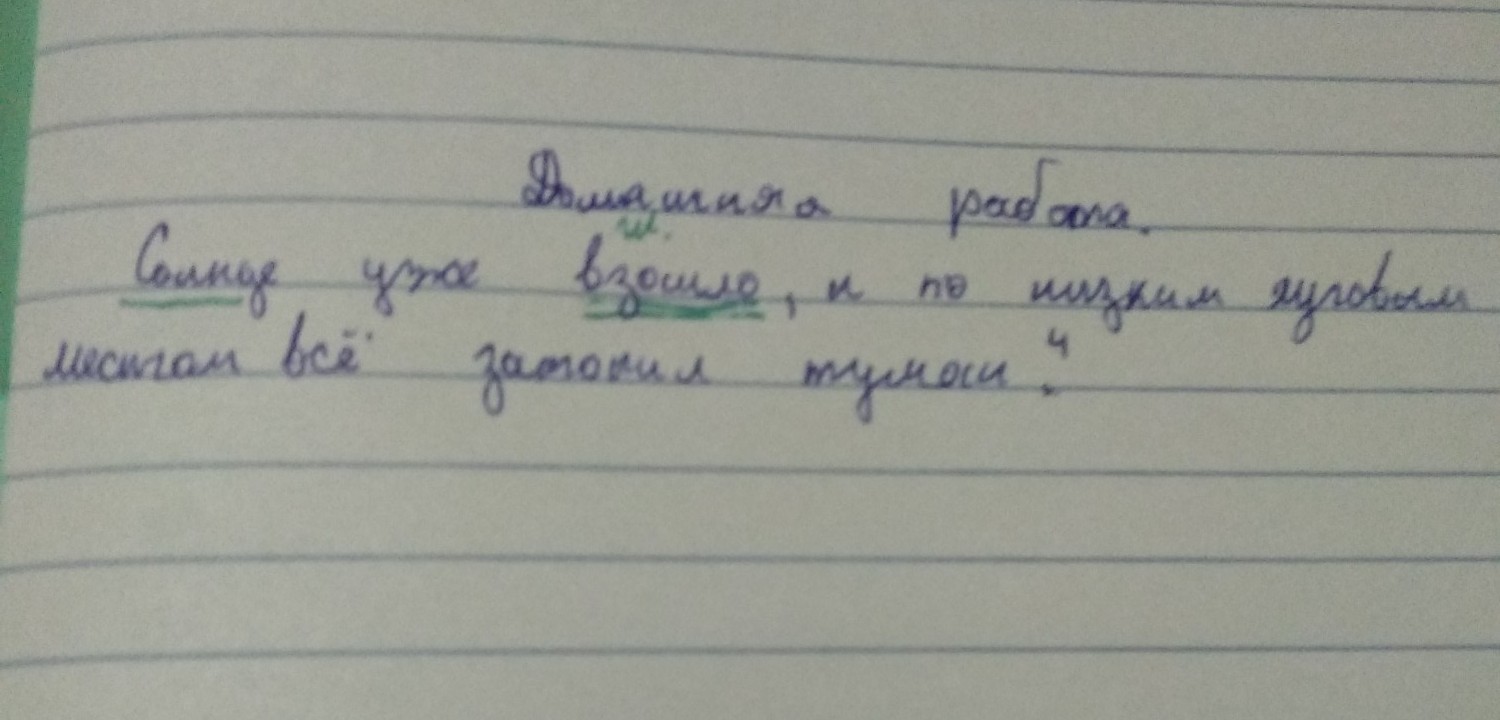 Домашняя работа.
ш.
Солнце уже взошло, и по низким луговым
местам всё затопил туман.⁴